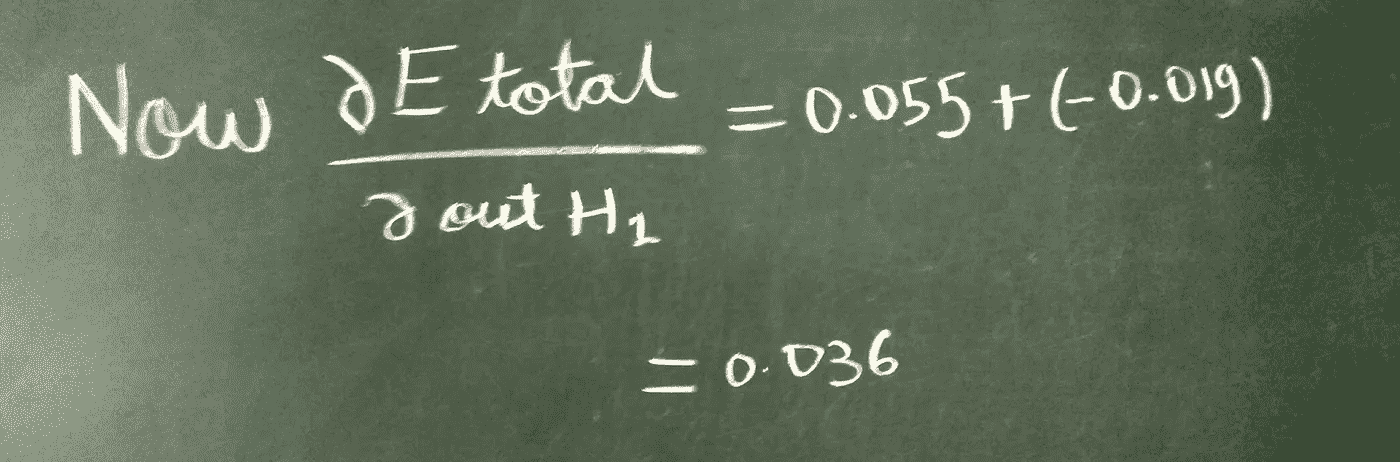 Now ∂E total / ∂ out H₁ = 0.055 + (-0.019)
= 0.036